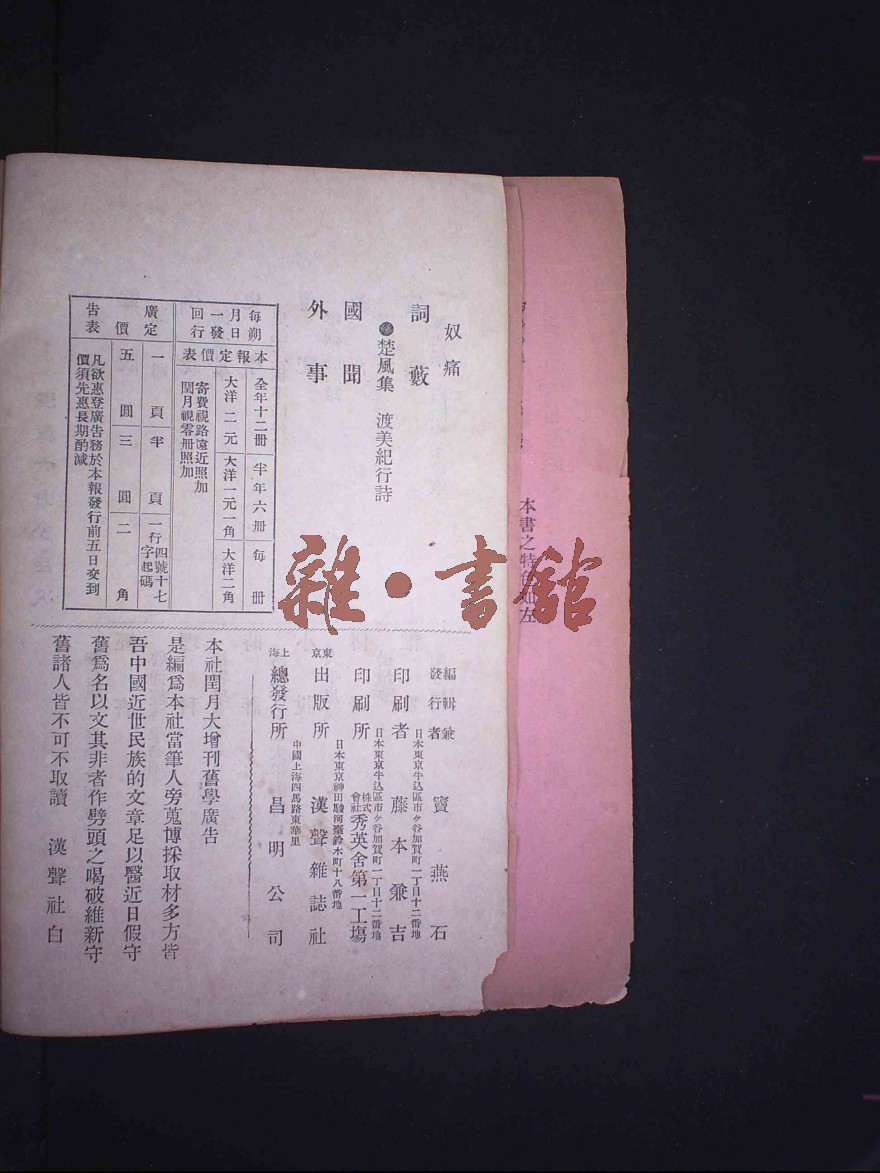 奴痛
詞藪
楚風集　渡美紀行詩
國聞
外事
每月一回
朔日發行
本報定價表
全年十二册
半年六册
每册
大洋二元
大洋一元一角
大洋二角
寄費視路遠近照加
閏月視零册照加
廣告
定價表
一頁
半頁
一行四號十七字起碼
五圓
三圓
二角
凡欲惠登廣告務於本報發行前五日交到
價須先惠長期酌減
編輯兼
發行者　竇燕石
日本東京牛込區市ヶ谷加賀町一丁目十二番地
印刷者　藤本兼吉
日本東京牛込區市ヶ谷加賀町一丁目十二番地
印刷所　株式會社秀英舍第一工塲
日本東京神田駿河臺鈴木町十八番地
東京　出版所　漢聲雜誌社
中國上海四馬路東華里
上海　總發行所　昌明公司
本社閏月大增刊舊學廣告
是編爲本社當筆人旁蒐博採取材多方皆
吾中國近世民族的文章足以醫近日假守
舊爲名以文其非者作劈頭之喝破維新守
舊諸人皆不可不取讀　漢聲社白
本書之特色如左
雜·書館